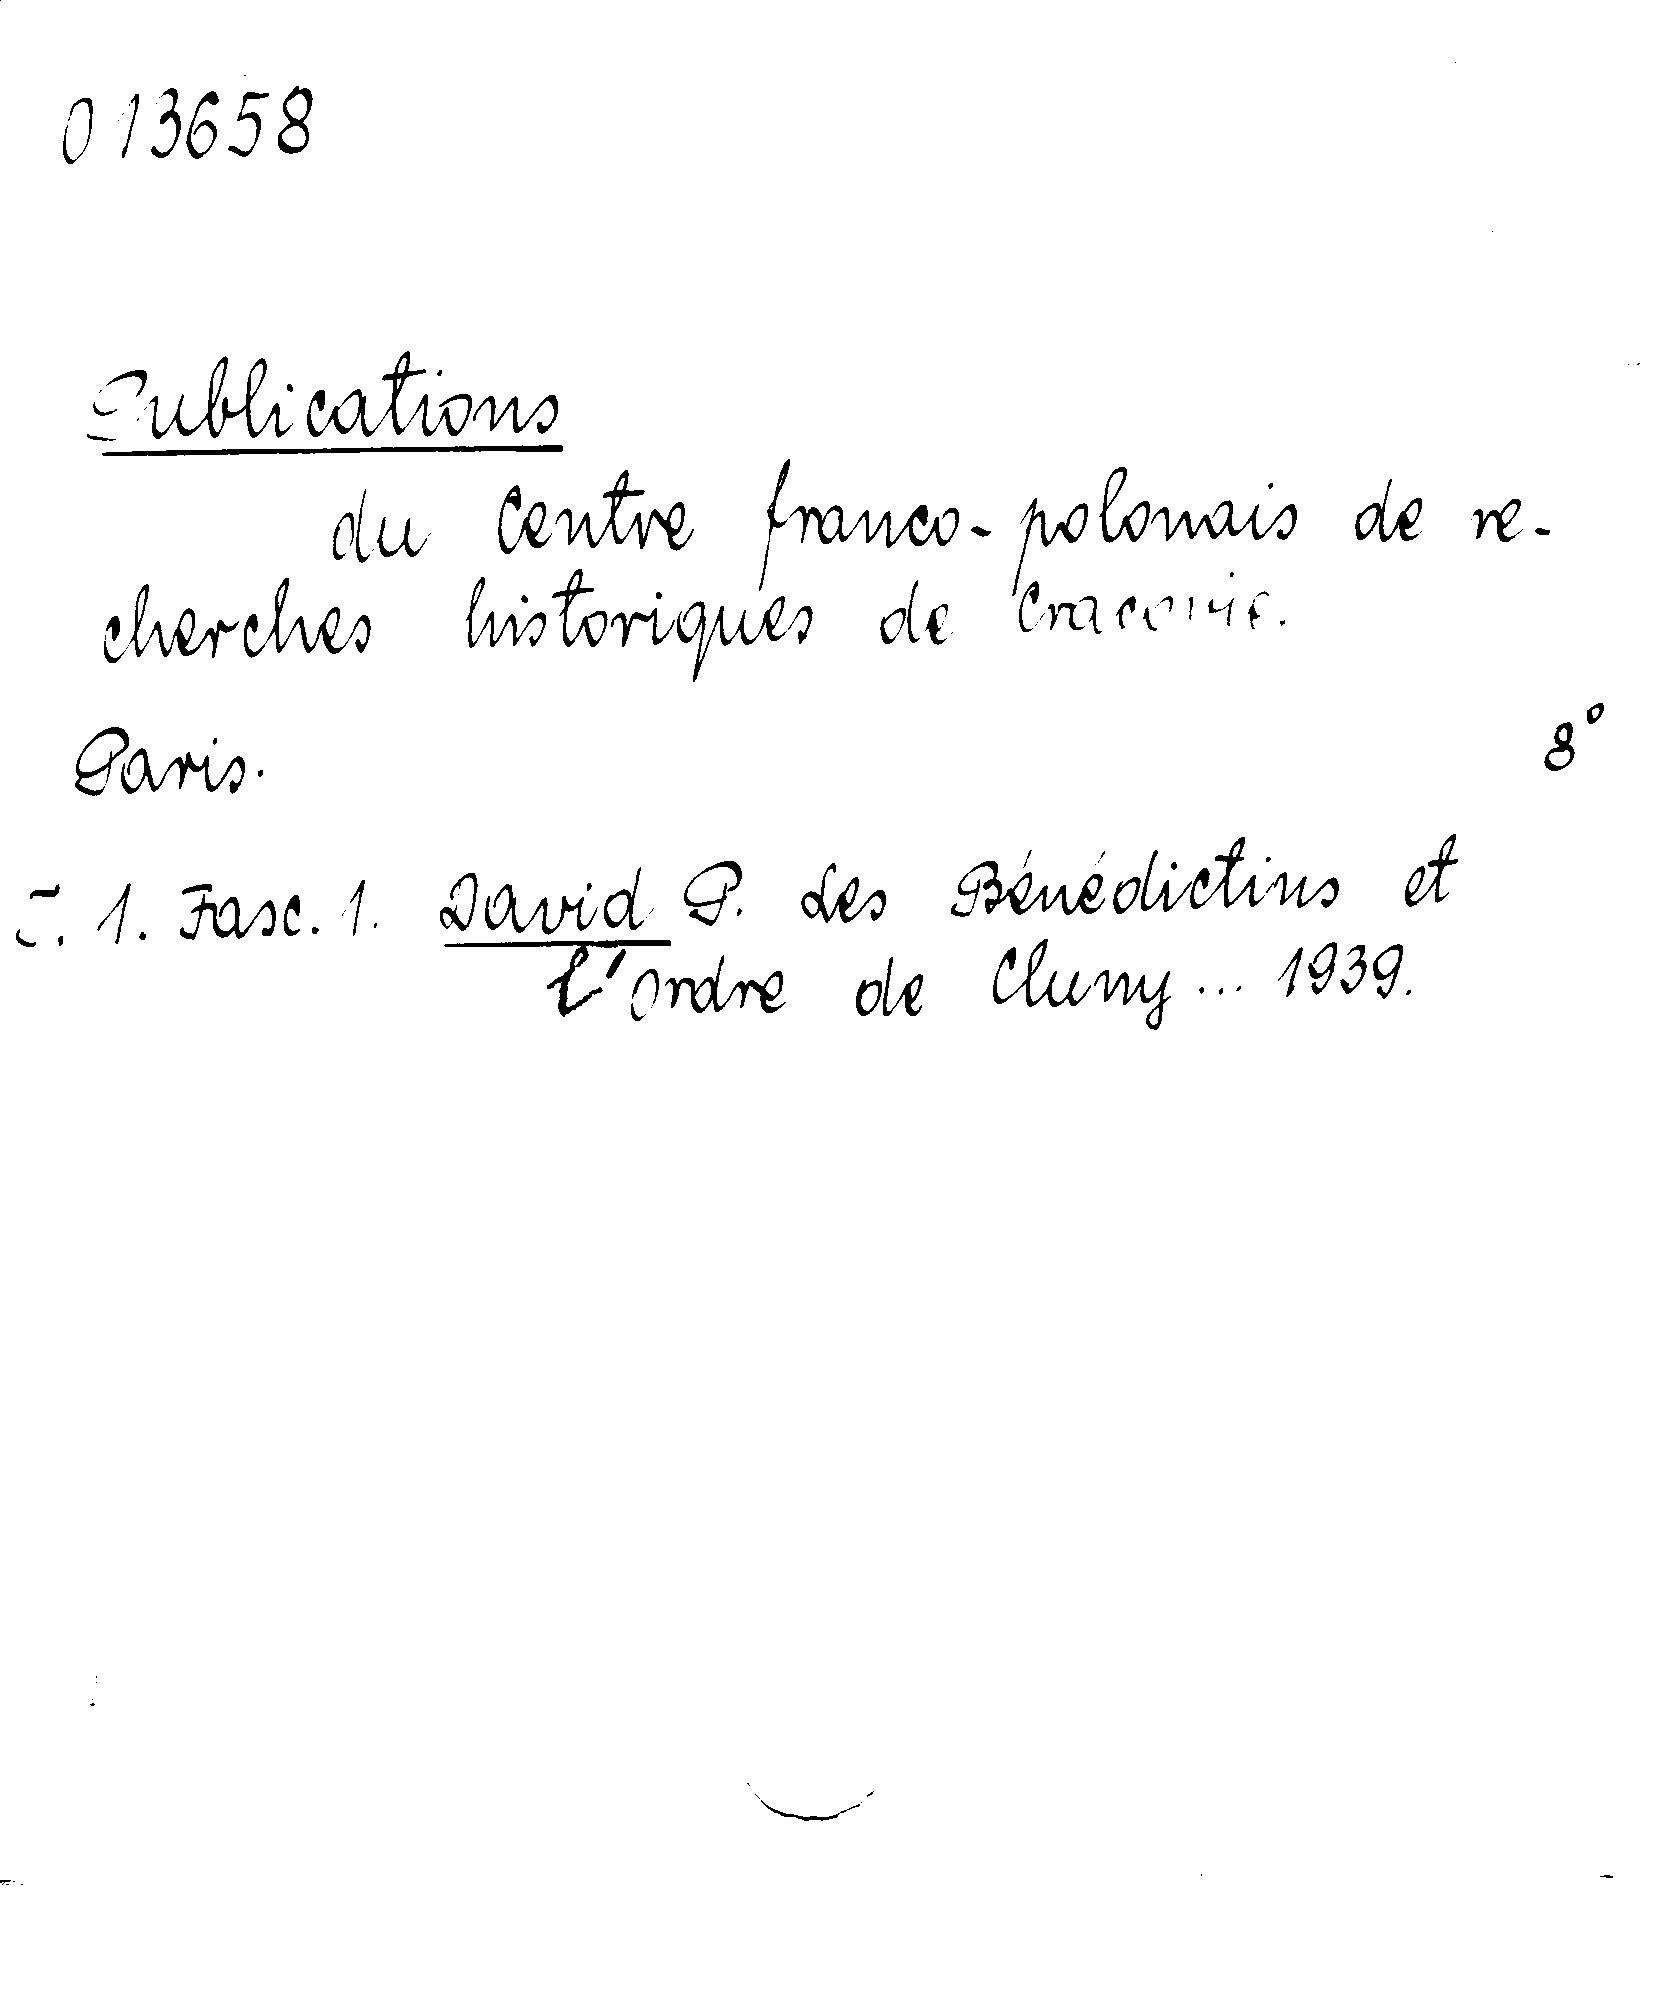 013658
Publications
du Centre franco-polonais de re-
cherches historiques de Cracovie.
Paris. 8°
T. 1. Fasc. 1. David P. Les Bénédictins et
l'Ordre de Cluny ... 1939.